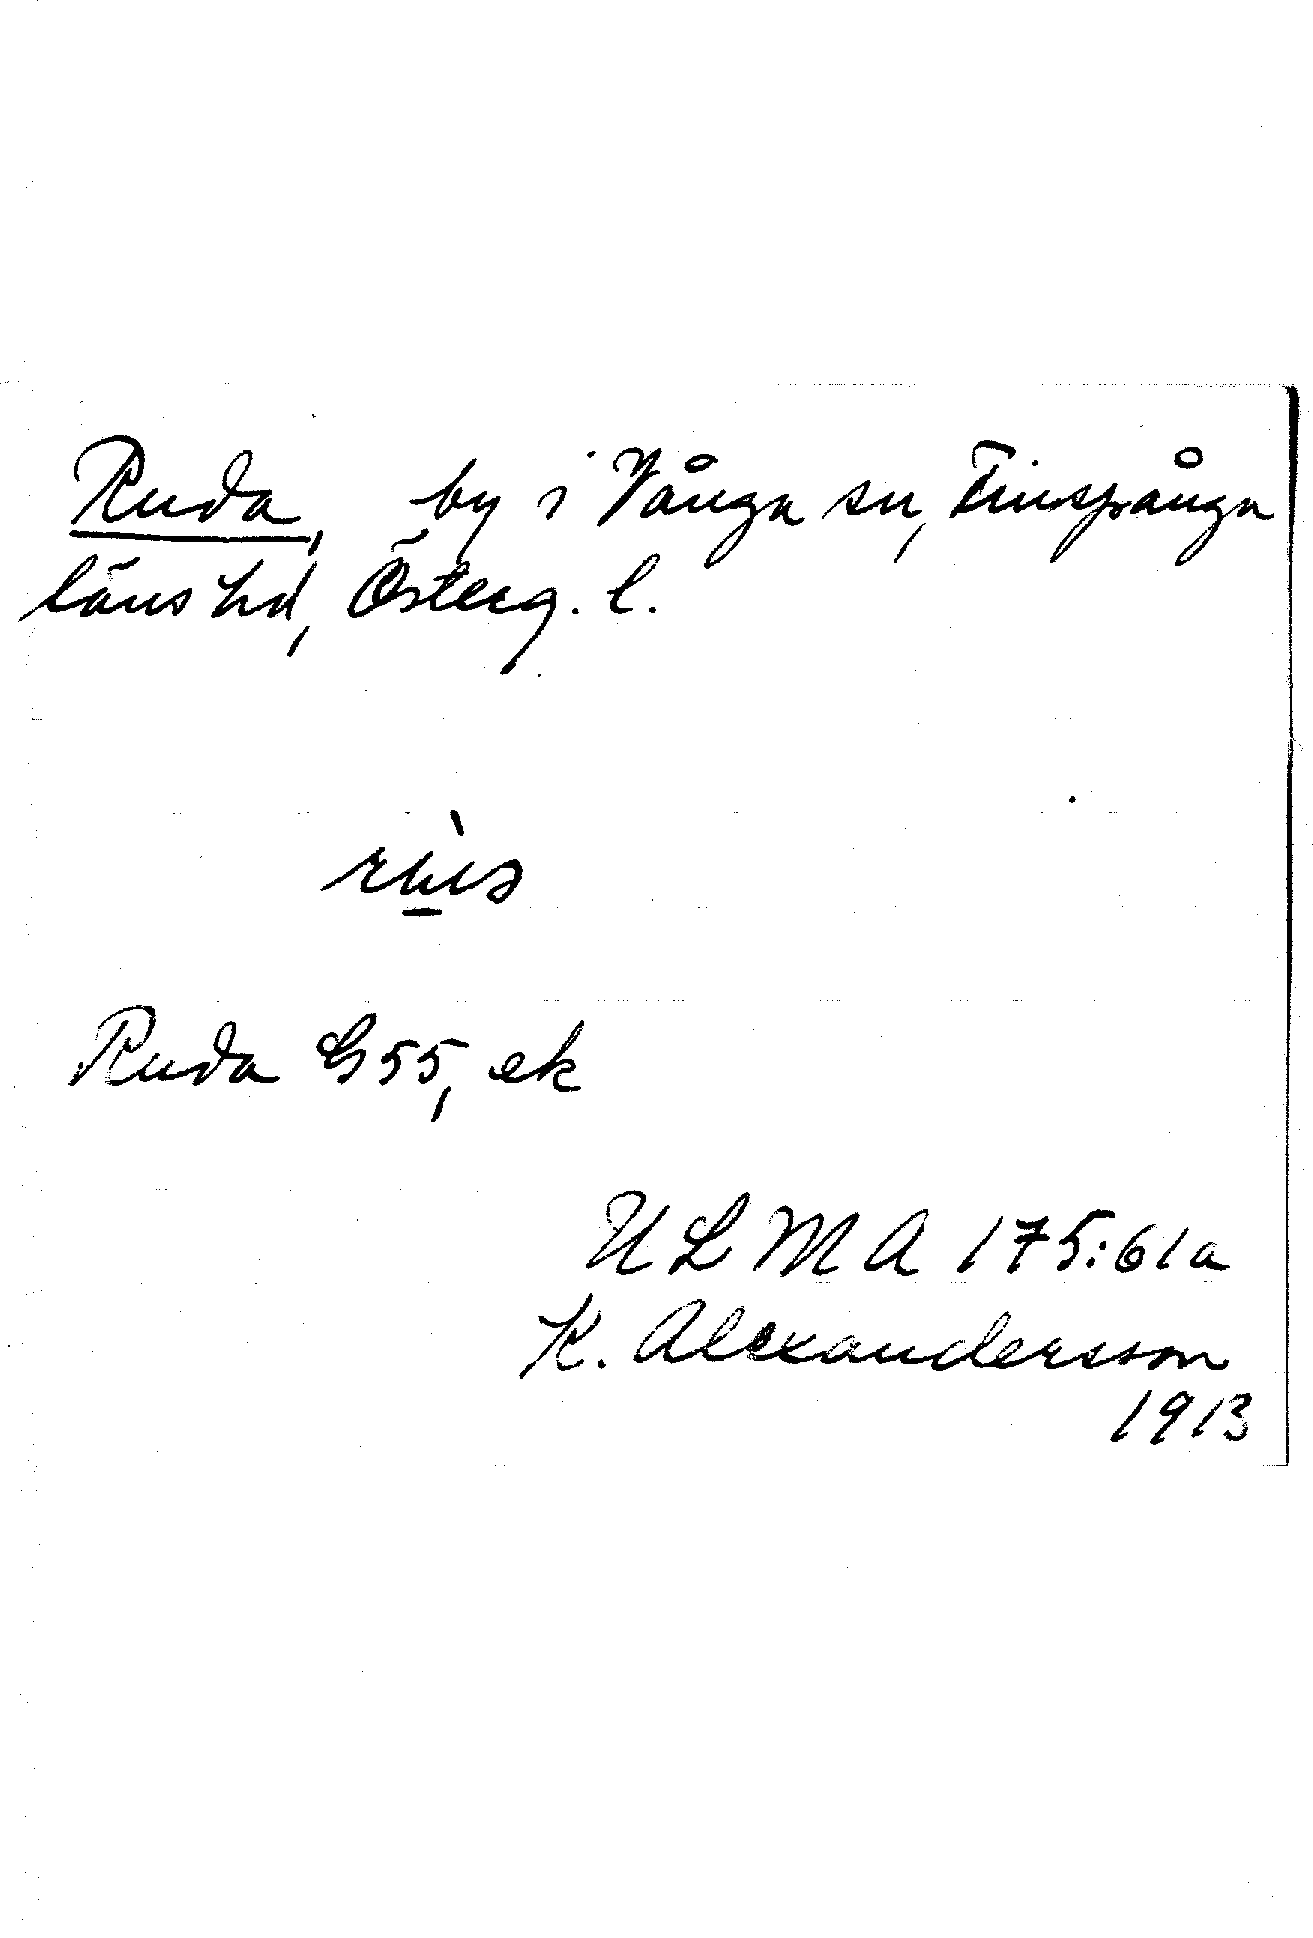 Ruda, by i Vånga sn, Finspånga
läns hd, Österg. l.
Ruda G 55, ek
ULMA 175:61a
K. Alexandersson
1913